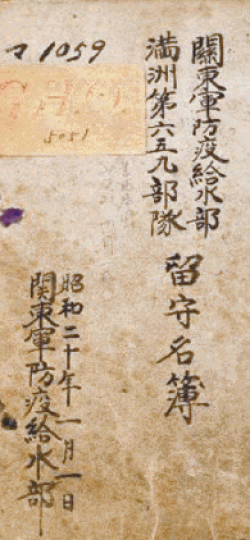 マ1059
5051
關東軍防疫給水部
満洲第六五九部隊
留守名簿
昭和二十年一月一日
関東軍防疫給水部